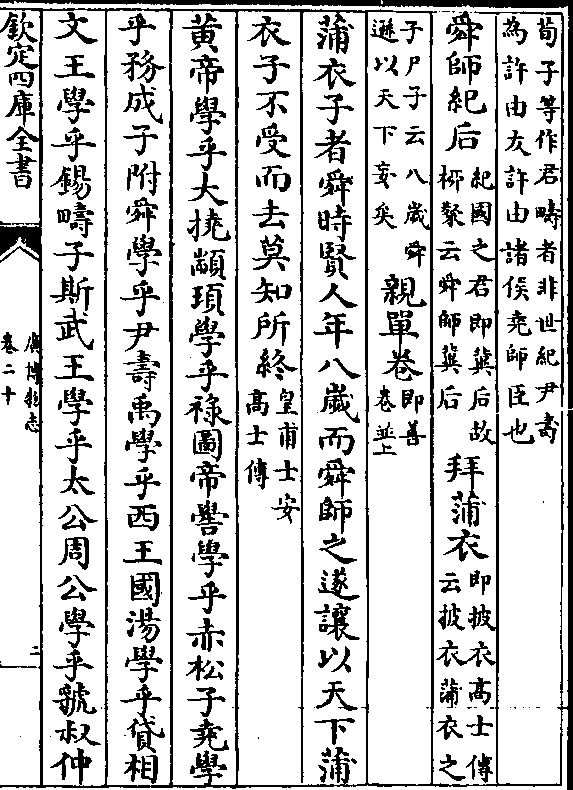 荀子等作君疇者非世紀尹壽
為許由友許由諸侯堯師臣也
舜師紀后紀國之君即冀后故
栁粲云舜師冀后拜蒲衣即披衣高士傳
云披衣蒲衣之
子尸子云八歲舜
遜以天下妄矣親單卷即善
卷並上
蒲衣子者舜時賢人年八歲而舜師之遂讓以天下蒲
衣子不受而去莫知所終皇甫士安
高士傳
黄帝學乎大撓顓頊學乎祿圖帝嚳學乎赤松子堯學
乎務成子附舜學乎尹壽禹學乎西王國湯學乎貸相
文王學乎錫疇子斯武王學乎太公周公學乎虢叔仲
欽定四庫全書
廣博物志
卷二十
二